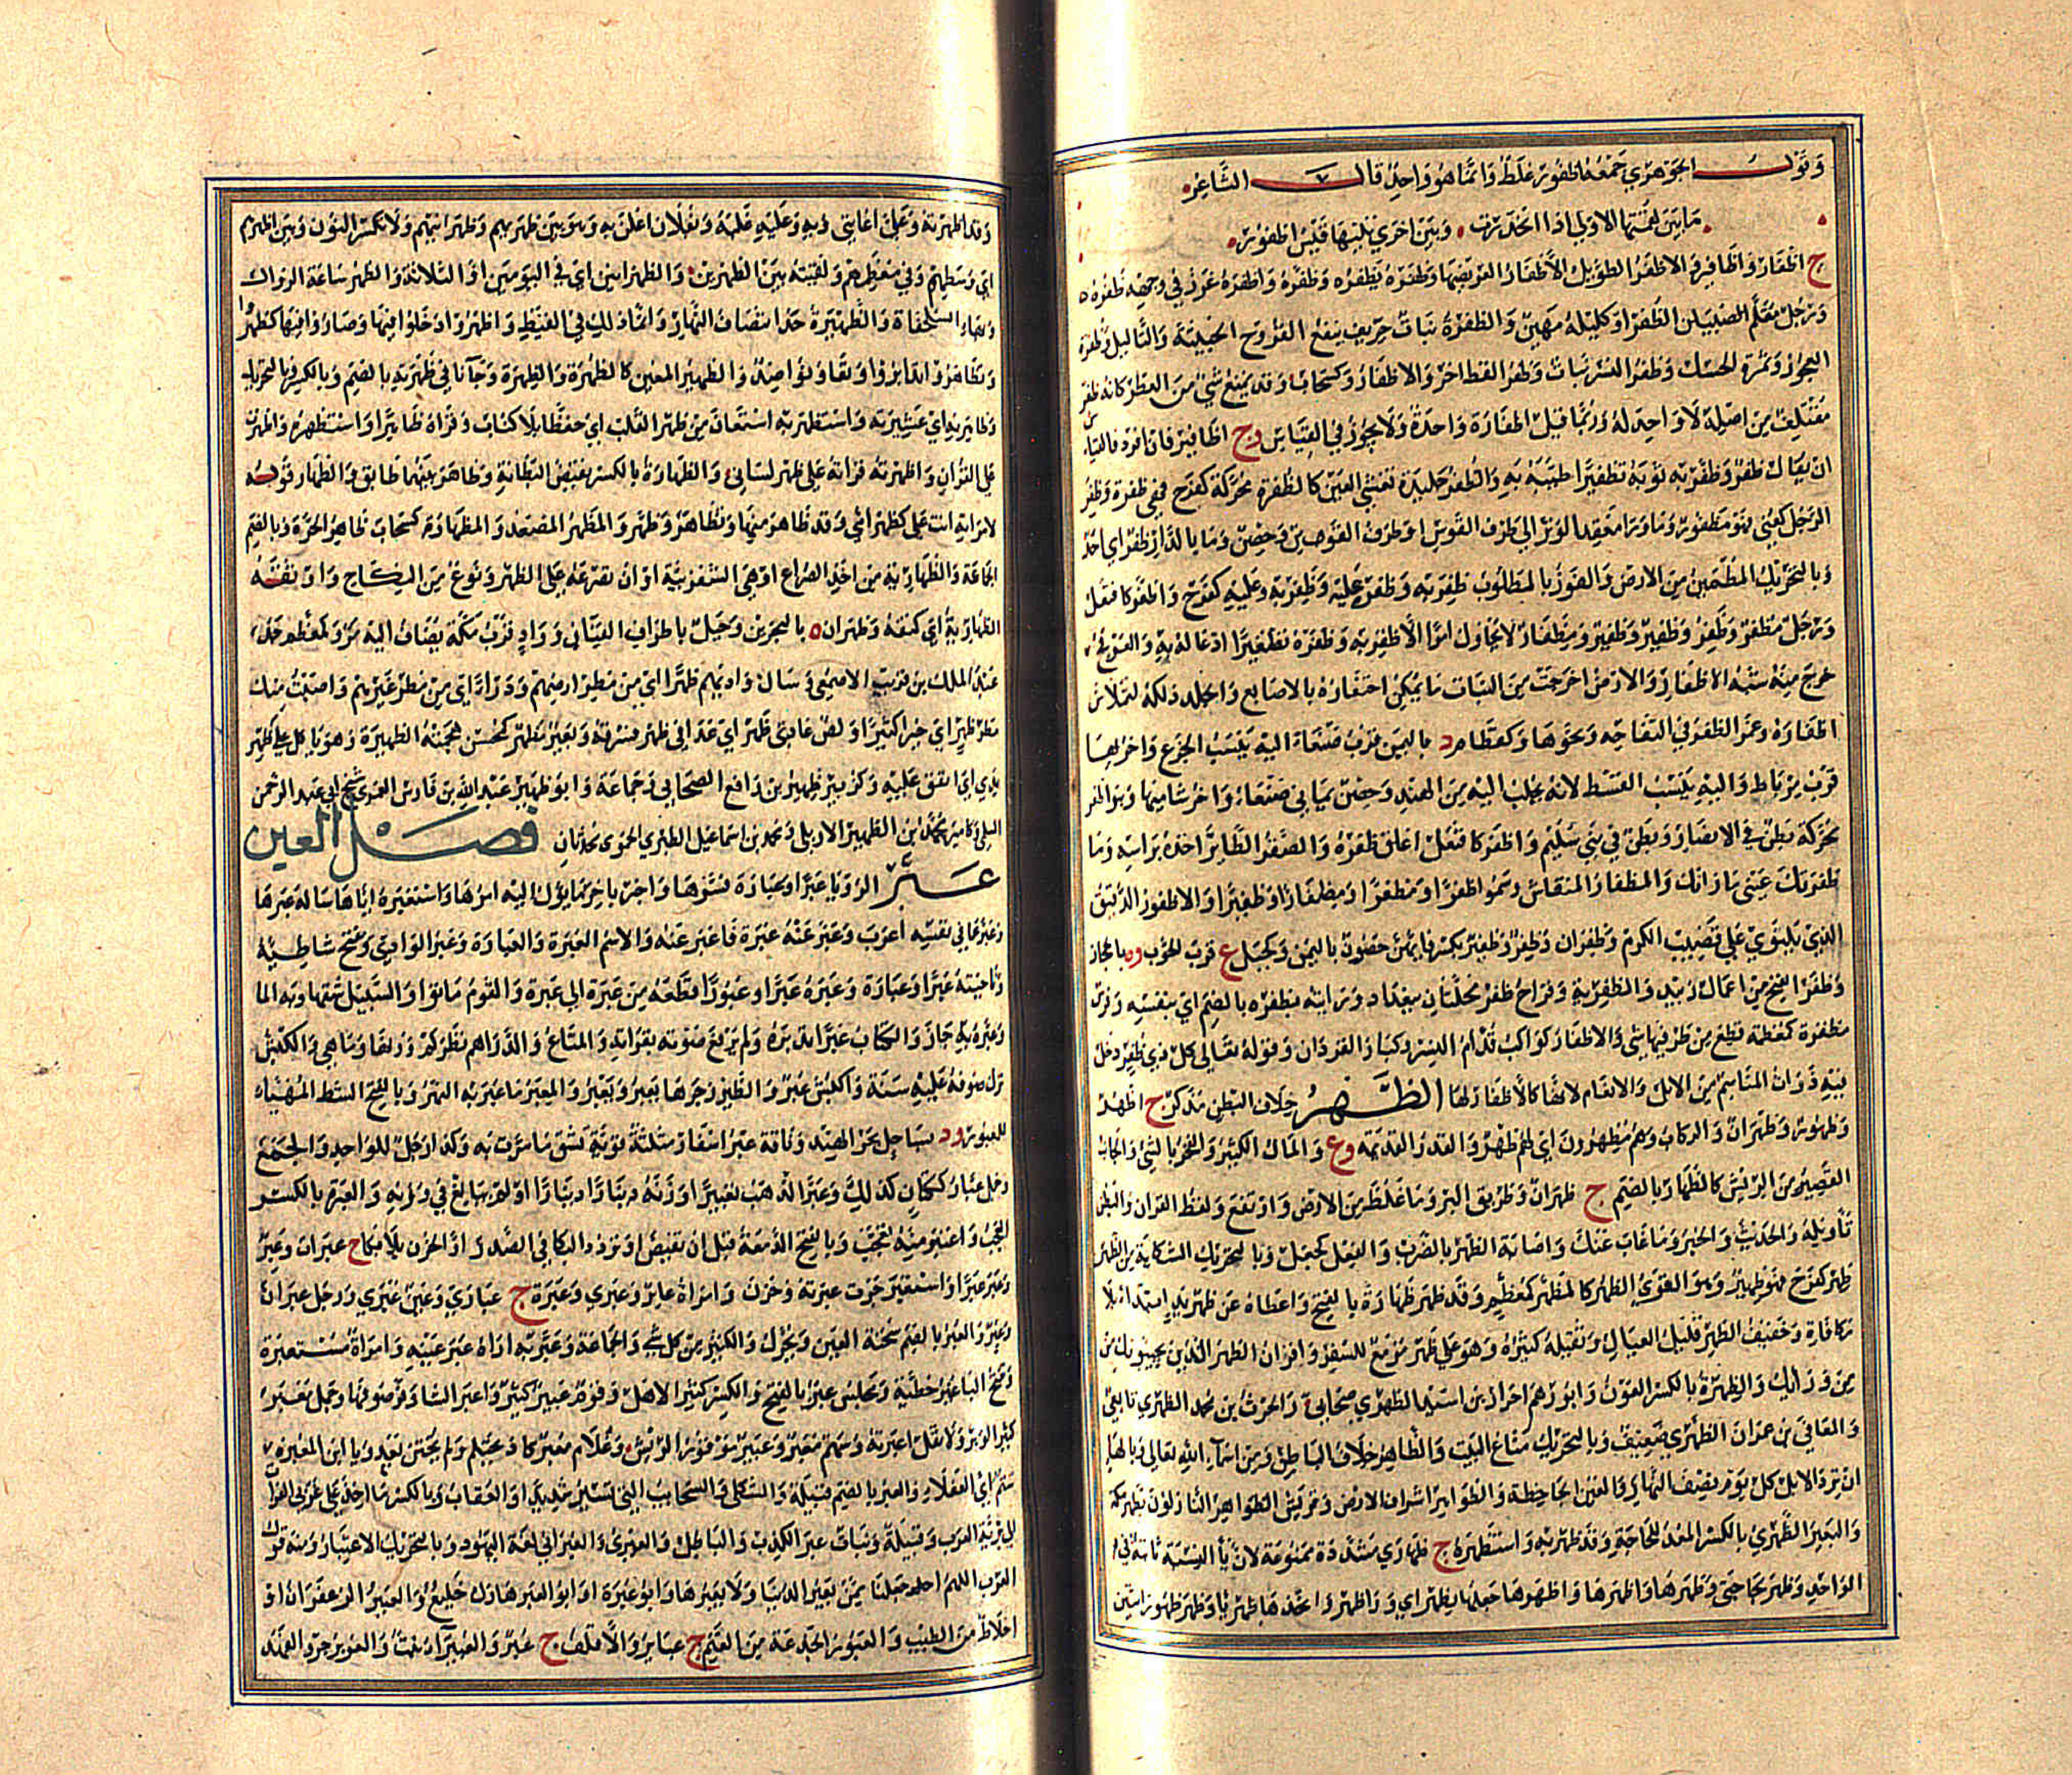 وقول الجوهري جمعه اظفور غلط وانما هو واحد قال الشاعر
ما بين لقمتها الاولى اذا انحدرت وبين اخرى تليها قيس اظفور
ج اظفار واظافير والاظفر الطويل الاظفار العريضها وظفره يظفره وظفره واظفره غرز في وجهه ظفره
ورجل مقلم الظفر او كليله مهين والظفرة نبات حريف ينفع القروح الخبيثة والثاليل وظفرة
العجوز وثمرة الحسك وظفر النسر نبات وظفر القط اخر والاظفار وكسحاب وقد يمنع شيء من العطر كانه ظفر
مقتلف من اصله لا واحد له وربما قيل اظفارة واحدة ولا يجوز في القياس وج اظافير فان افرد فالقياس
ان يقال ظفر وظفر به ثوبه تظفيرا طيبه به والظفر جليدة تغشى العين كالظفرة محركة كفرح فهي ظفرة وظفر
الرجل كعني فهو مظفور وما وراء معقد الوتر الى طرف القوس او طرف القوس ين وحصن وما بالدار ظفر اي احد
وبالتحريك المطمئن من الارض والفوز بالمطلوب ظفره وظفر به وظفر عليه وظفر به وعليه كفرح واظفر كافتعل
ورجل مظفر وظفر وظفير وظفير ومظفار لا يحاول امرا الا ظفر به وظفره تظفيرا ادعا له به والعرفج
خرج منه شبه الاظفار والارض اخرجت من النبات ما يمكن احتفاره بالاصابع والجلد دلكه لتملاس
اظفاره وغمز الظفر في التفاحه ونحوها وكقطام د باليمن قرب صنعاء اليه ينسب الجزع واخر بها
قرب مرباط واليه ينسب القسط لانه يجلب اليه من الهند وحصن يماني صنعاء واخر شاميها وبنو ظفر
محركة بطن في الانصار وبطن في بني سليم واظفر كافتعل اعلق ظفره والصقر الطاير اخذه براسه وما
ظفرتك عيني ما راتك والمظفار المنقاش وسموا ظفرا ومظفرا ومظفارا وظفيرا والاظفور الدقيق
الذي يلتوي على قضيب الكرم وظفران وظفر وظفير بكسرهما ين حصون باليمن وكجبل ع قرب الحوب وة بالحجاز
وظفر الفنج من اعمال زبيد والمظفرية وقراح ظفر محلتان ببغداد ورايته بظفره بالضم اي بنفسه وقوس
مظفرة كمعظمة قطع من طرفيها شي والاظفار كواكب قدام النسر وكبار القردان وقوله تعالى كل ذي ظفر دخل
فيه ذوات المناسم من الابل والانعام لانها كالاظفار لها الظهر خلاف البطن مذكر ج اظهر
وظهور وظهران والركاب وهم مظهرون اي لهم ظهر والقدر القديمة وع والمال الكثير والفخر بالشي والجانب
القصير من الريش كالظهار بالضم ج ظهران وطريق البر وما غلظ من الارض وارتفع ولفظ القران والبطن
تاويله والحديث والخبر وما غاب عنك واصابة الظهر بالضرب والفعل كجعل وبالتحريك الشكاية من الظهر
ظهر كفرح فهو ظهير وهو القوي الظهر كالمظهر كمعظم وقد ظهر ظهارة بالفتح واعطاه عن ظهر يد ابتداء بلا
مكافاة وخفيف الظهر قليل العيال وثقيله كثيره وهو على ظهر مزمع للسفر واقران الظهر الذين يجيئونك من
من ورائك والظهرة بالكسر العون وابو رهم احزاب بن اسيد الظهري صحابي والحرث بن محمد الظهري تابعي
والمعافى بن عمران الظهري ضعيف وبالتحريك متاع البيت والظاهر خلاف الباطن ومن اسماء الله تعالى وبالهاء
ان ترد الابل كل يوم نصف النهار والعين الجاحظة والظواهر اشراف الارض وقريش الظواهر النازلون بظهر مكة
والبعير الظهري بالكسر المعد للحاجة وقد ظهر به واستظهره ج ظهاري مشددة ممنوعة لان ياء النسبة ثابتة في
الواحد وظهر بحاجتي وظهرها واظهرها واظهرها جعلها بظهر اي وراء ظهر واتخذها ظهريا وظهر ظهورا تبين
وقد اظهرته وعلي اعانني وبه وعليه غلبه وبفلان اعلن به وهو بين ظهريهم وظهرانيهم ولا تكسر النون وبين اظهرهم
اي وسطهم وفي معظمهم ولقيته بين الظهرين والظهرانين اي في اليومين او الثلاثة والظهر ساعة الزوال
وبهاء السلحفاة والظهيرة حد انتصاف النهار او انما ذلك في القيظ واظهروا دخلوا فيها وصاروا فيها كظهروا
وتظاهروا تدابروا وتعاونوا ضد والظهير المعين كالظهرة والظهرة وجاءنا في ظهرته بالضم وبالكسر وبالتحريك
وظاهرته اي عشيرته واستظهر به استعان من ظهر القلب اي حفظا بلا كتاب وقراه ظاهرا واستظهره واظهرت
على القران واظهرته قراته على ظهر لساني والظهارة بالكسر نقيض البطانة وظاهر بينهما طابق والظهار قوله
لامراته انت علي كظهر امي وقد ظاهر منها وتظاهر وظهر والمظهر المصعد والمظهارة كسحاب ظاهر الحرة وبالضم
الجماعة والظهارية من اخذ الصراع او هي الشغزبية او ان تصرعه على الظهر ونوع من النكاح واوثقه
الظهارية اي كتفه وظهران ة بالبحرين وجبل باطراف القنان وواد قرب مكة يضاف اليه مر وكمعظم جد
عبد الملك بن قريب الاصمعي وسال واديهم ظهرا اي من مطر ارضهم ودرءا اي من مطر غيرهم واصبت منك
مطر ظهر اي خيرا كثيرا ولص عادي ظهر اي عدا في ظهر فسرقه وبعير مظهر كمحسن هجمته الظهيرة وهو ياكل على ظهر
يدي اي انفق عليه وكزبير ظهير بن رافع الصحابي وجماعة وابو ظهير عبد الله بن فارس العمري شيخ ابي عبد الرحمن
السلمي وكامير محمد بن الظهير الاربلي ومحمد بن اسماعيل الطبري الحموي محدثان فصل العين
عبر الرؤيا عبرا وعبارة فسرها واخبر باخر ما يؤل اليه امرها واستعبره اياها ساله عبرها
وعبر عما في نفسه اعرب وعبر عنه غيره فاعبر عنه والاسم العبرة والعبارة وعبر الوادي ويفتح شاطئه
وناحيته عبرا وعبارة وعبره عبرا وعبورا قطعه من عبره الى عبره والقوم ماتوا والسبيل شقها وبه الما
وعبره به جاز والكتاب عبرا تدبره ولم يرفع صوته بقراته والمتاع والدراهم نظر كم وزنها وما هي والكبش
ترك صوفه عليه سنة واكبش عبر والطير زجرها يعبر ويعبر والمعبر ما عبر به النهر وبالفتح الشط المهيا
للعبور ود بساحل بحر الهند وناقة عبر اسفار مثلثة قوية تشق ما مرت به وكذا رجل للواحد والجمع
وجمل عبار ككتان كذلك وعبر الذهب تعبيرا وزنه دينارا دينارا او لم يبالغ في وزنه والعبرة بالكسر
العجب واعتبر منه تعجب وبالفتح الدمعة قبل ان تفيض او تردد البكا في الصدر او الحزن بلا بكا ج عبرات وعبر
وعبر عبرا واستعبر جرت عبرته وحزن وامراة عابر وعبرى وعبرة ج عبارى وعين عبرى ورجل عبران
وعبر والعبر بالضم سخنة العين ويحرك والكثير من كل شيء والجماعة وعبر به اراه عبر عينيه وامراة مستعبرة
وتفتح الباء غير حظية ومجلس عبر بالفتح والكسر كثير الاهل وقوم عبير كثير واعبر الشاة وفر صوفها وجمل معبر
كثير الوبر ولا تقل اعبرته وسهم معبر وعبير موفور الريش وغلام معبر كاد يحتلم ولم يختن بعد ويا ابن المعبرة
شتم اي العفلاء والعبر بالضم قبيلة والثكلى والسحايب التي تسير شديدا والعقاب وبالكسر ما اخذ على غربي الفرات
الى برية العرب وقبيلة وبنات عبر الكذب والباطل والعبري والعبراني لغة اليهود وبالتحريك الاعتبار ومنه قول
العرب اللهم اجعلنا ممن يعبر الدنيا ولا يعبرها وابو عبرة او ابو العبر هازل خليع والعبير الزعفران او
اخلاط من الطيب والعبور الجذعة من الغنم ج عباير والاقلف ج عبر والعبيراء نبت والعوبر جرو الفهد